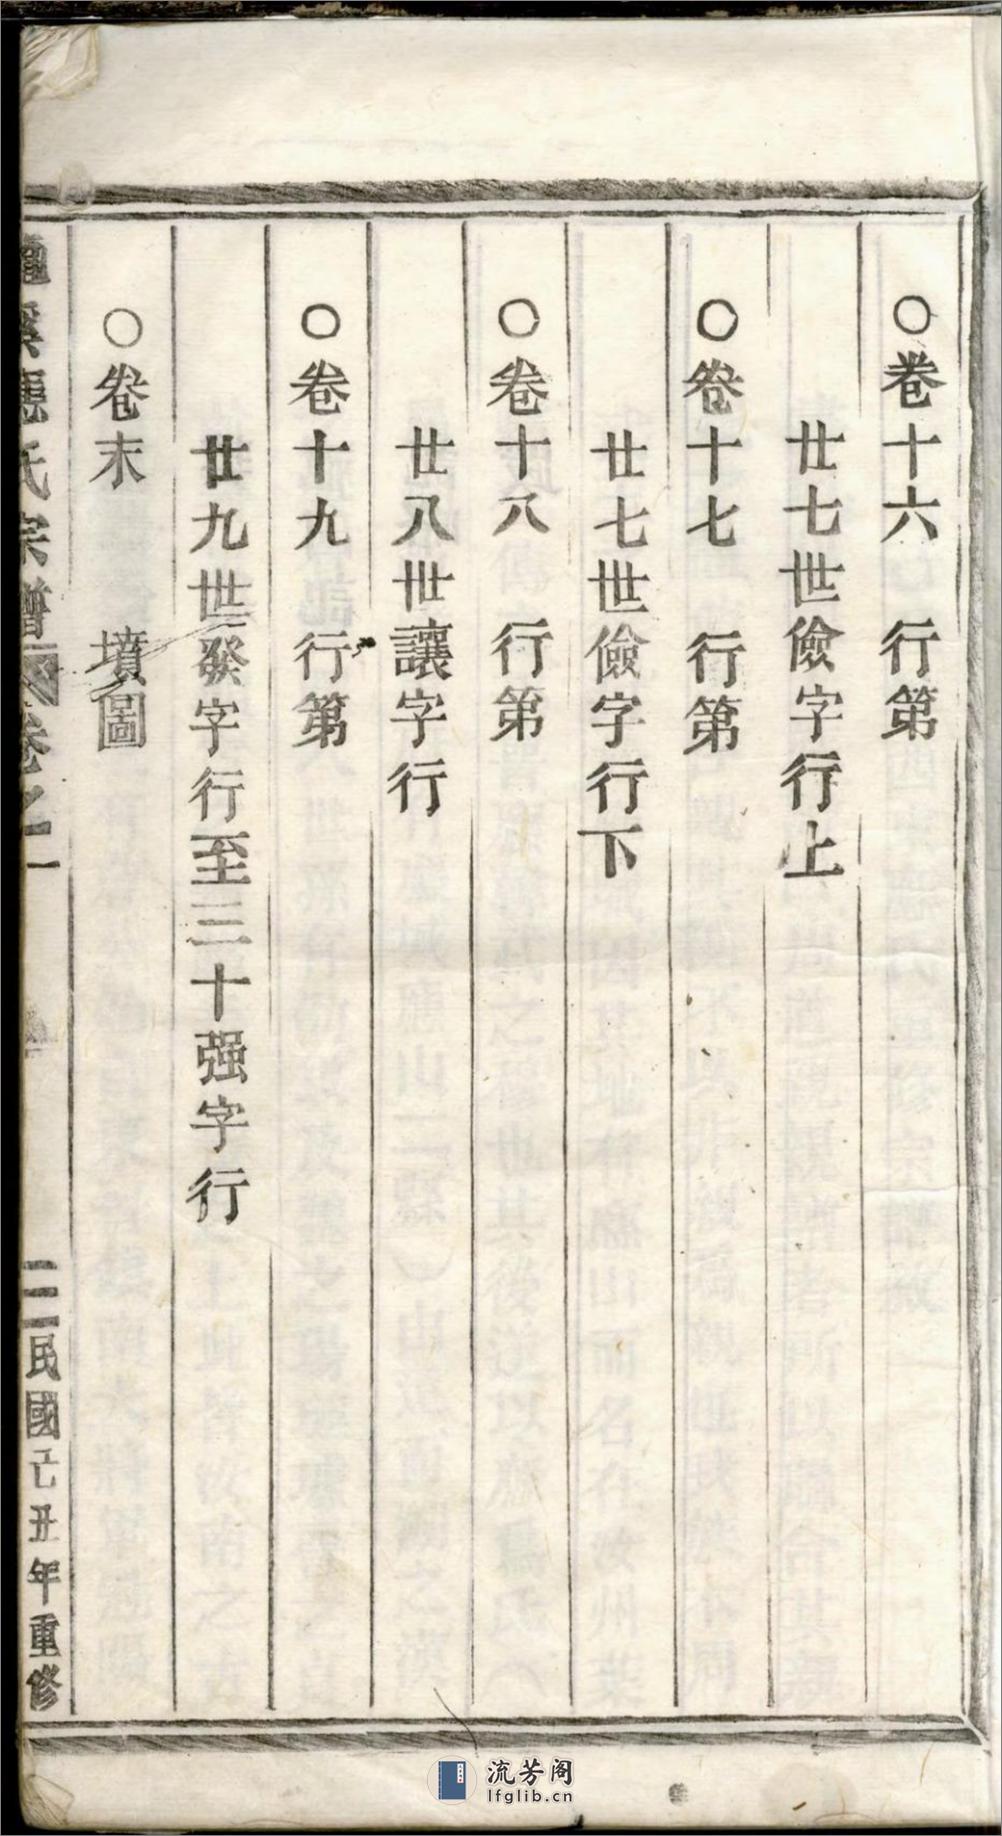 ○卷十六　行第
廿七世儉字行上
○卷十七　行第
廿七世儉字行下
○卷十八　行第
廿八世讓字行
○卷十九　行第
廿九世發字行至三十强字行
○卷末　墳圖
溪應氏宗譜 卷之一 三 民國己丑年重修
流芳阁
lfglib.cn